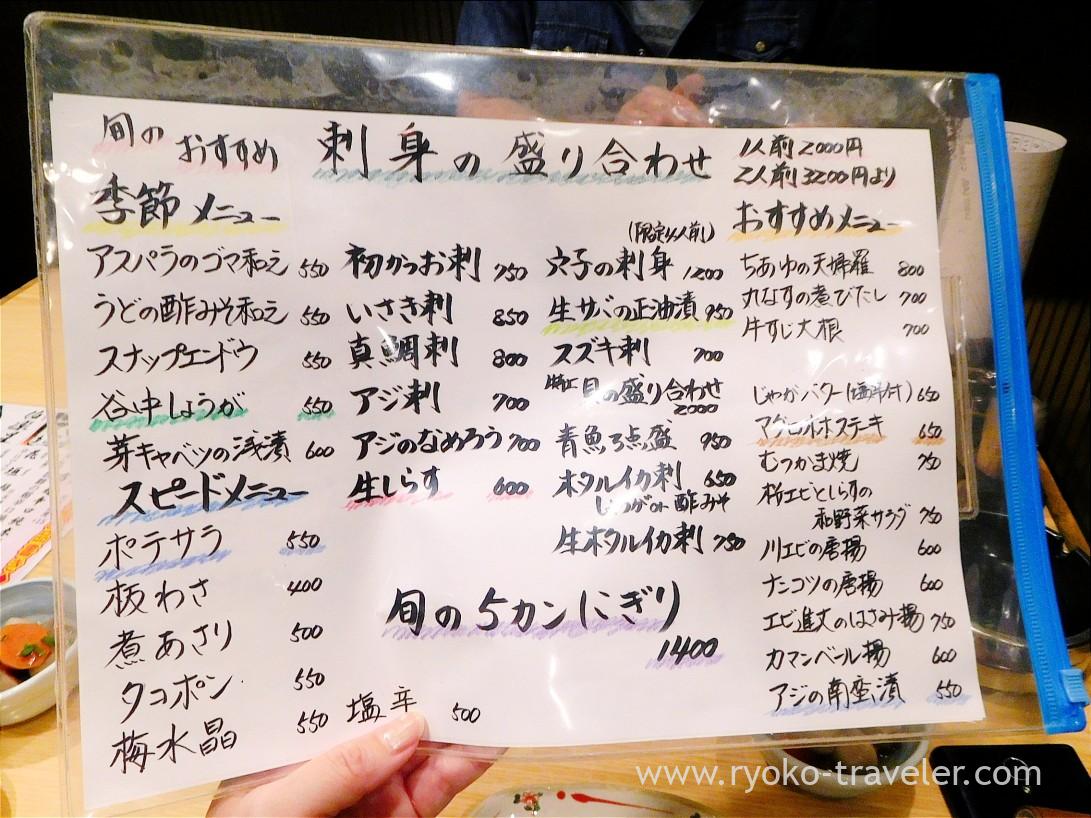 旬の おすすめ
刺身の盛り合わせ
1人前 2000円
2人前 3200円より
季節メニュー
アスパラのゴマ和え 550
うどの酢みそ和え 550
スナップエンドウ 550
谷中しょうが 550
芽キャベツの浅漬 600
スピードメニュー
ポテサラ 550
板わさ 400
煮あさり 500
タコポン 550
梅水晶 550
初かつお刺 750
いさき刺 850
真鯛刺 800
アジ刺 700
アジのなめろう 700
生しらす 600
(限定4人前)
穴子の刺身 1200
生サバの正油漬 950
スズキ刺 700
貝の盛り合わせ
2000
青魚3点盛 950
ホタルイカ刺 650
しょうがor酢みそ
生ホタルイカ刺 750
旬の5カンにぎり
1400
塩辛 500
おすすめメニュー
ちあゆの天婦羅 800
丸なすの煮びたし 700
牛すじ大根 700
じゃがバター(塩辛付) 650
マグロネギステーキ 650
むつかま焼 750
桜エビとしらすの
和野菜サラダ 750
川エビの唐揚 600
ナンコツの唐揚 600
エビ進丈のはさみ揚 750
カマンベール揚 600
アジの南蛮漬 550
www.ryoko-traveler.com